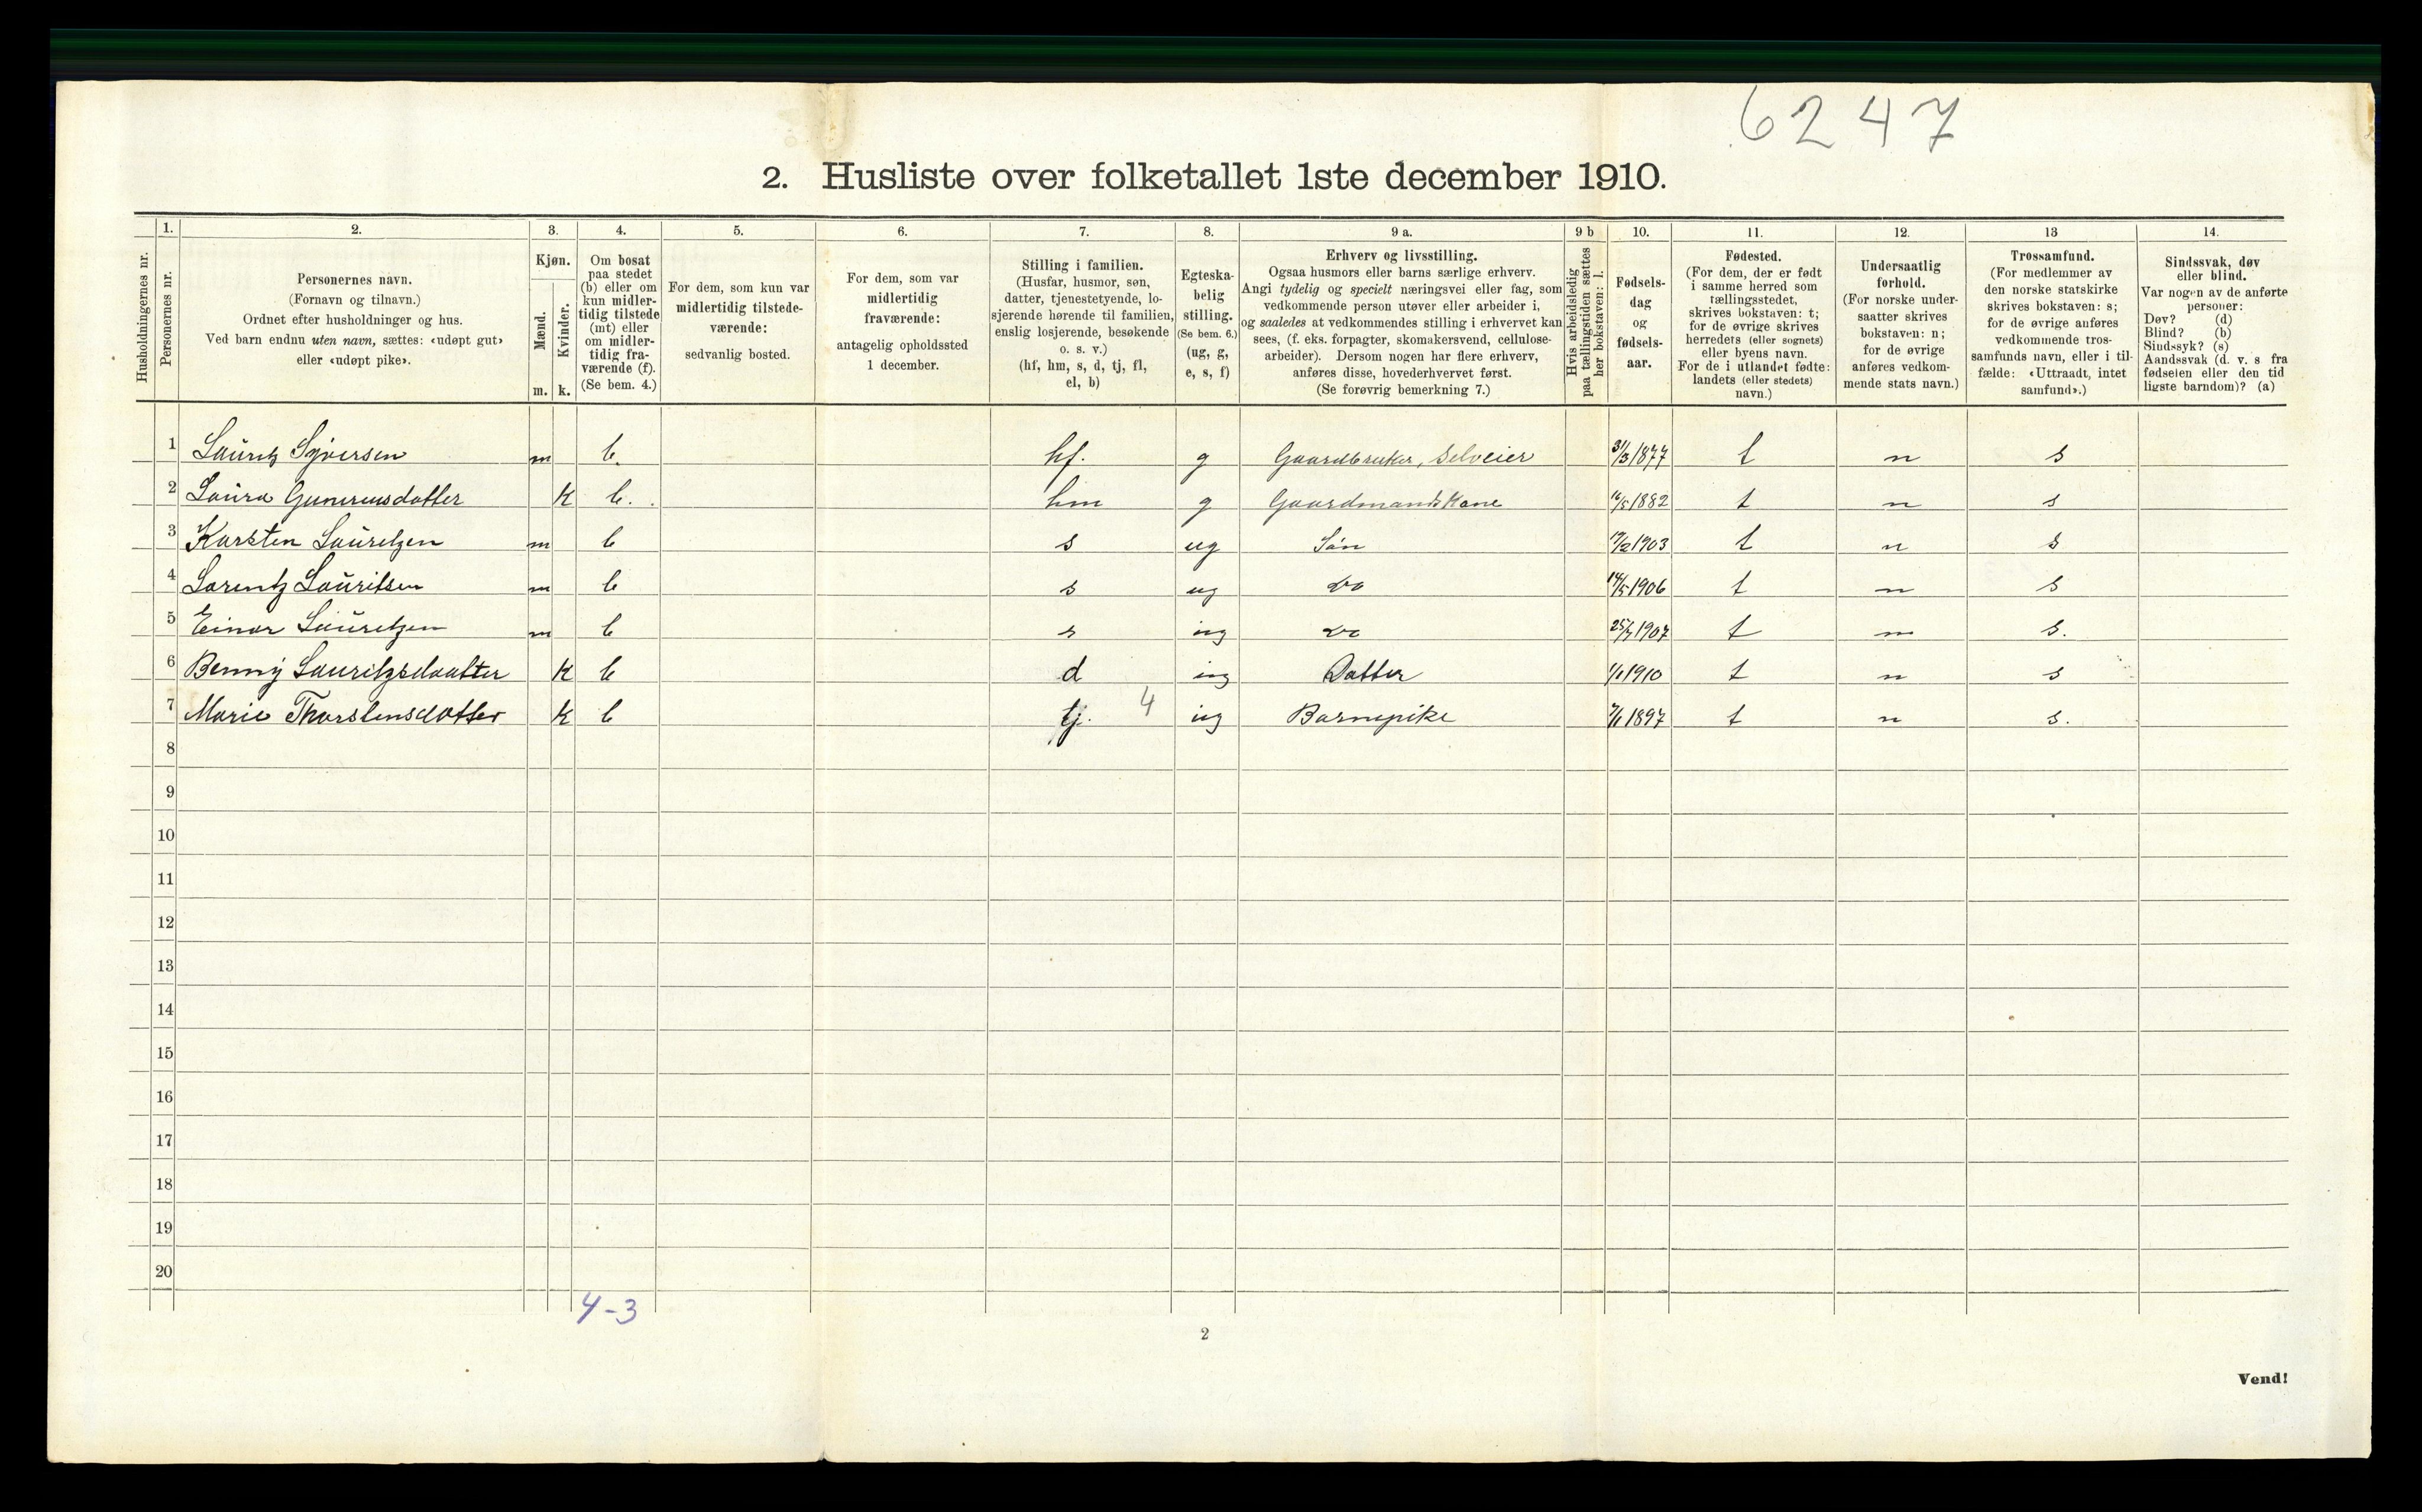 6247
2. Husliste over folketallet 1ste december 1910.
Husholdningernes nr.
1.
Personernes nr.
2.
Personernes navn.
(Fornavn og tilnavn.)
Ordnet efter husholdninger og hus.
Ved barn endnu uten navn, sættes: «udøpt gut»
eller «udøpt pike».
3.
Kjøn.
Mænd.
m.
Kvinder.
k.
4.
Om bosat
paa stedet
(b) eller om
kun midler-
tidig tilstede
(mt) eller
om midler-
tidig fra-
værende (f).
(Se bem. 4.)
5.
For dem, som kun var
midlertidig tilstede-
værende:
sedvanlig bosted.
6.
For dem, som var
midlertidig
fraværende:
antagelig opholdssted
1 december.
7.
Stilling i familien.
(Husfar, husmor, søn,
datter, tjenestetyende, lo-
sjerende hørende til familien,
enslig losjerende, besøkende
o. s. v.)
(hf, hm, s, d, tj, fl,
el, b)
8.
Egteska-
belig
stilling.
(Se bem. 6.)
(ug, g,
e, s, f)
9 a.
Erhverv og livsstilling.
Ogsaa husmors eller barns særlige erhverv.
Angi tydelig og specielt næringsvei eller fag, som
vedkommende person utøver eller arbeider i,
og saaledes at vedkommendes stilling i erhvervet kan
sees, (f. eks. forpagter, skomakersvend, cellulose-
arbeider). Dersom nogen har flere erhverv,
anføres disse, hovederhvervet først.
(Se forøvrig bemerkning 7.)
9 b
Hvis arbeidsledig
paa tællingstiden sættes
her bokstaven: l.
10.
Fødsels-
dag
og
fødsels-
aar.
11.
Fødested.
(For dem, der er født
i samme herred som
tællingsstedet,
skrives bokstaven: t;
for de øvrige skrives
herredets (eller sognets)
eller byens navn.
For de i utlandet fødte:
landets (eller stedets)
navn.)
12.
Undersaatlig
forhold.
(For norske under-
saatter skrives
bokstaven: n;
for de øvrige
anføres vedkom-
mende stats navn.)
13
Trossamfund.
(For medlemmer av
den norske statskirke
skrives bokstaven: s;
for de øvrige anføres
vedkommende tros-
samfunds navn, eller i til-
fælde: «Uttraadt, intet
samfund».)
14.
Sindssvak, døv
eller blind.
Var nogen av de anførte
personer:
Døv? (d)
Blind? (b)
Sindssyk? (s)
Aandssvak (d. v. s fra
fødselen eller den tid
ligste barndom)? (a)
1 Lauritz Syversen m b. hf. g Gaardbruker, Selveier 31/3 1877 t n s
2 Laura Gunerusdatter K b. hm g Gaardmandskone 16/5 1882 t n s
3 Karsten Lauretzen m b s ug Søn 17/2 1903 t n s
4 Lorentz Lauritsen m b s ug do 14/5 1906 t n s
5 Einar Lauretzen m b s ug do 1907 t n s.
6 Benny Lauritzsdaatter K b d ug Datter 1/1 1910 t n s
7 Marie Thorstensdatter K b tj. 4 ug Barnepike 1897 t n s.
8
9
10
11
12
13
14
15
16
17
18
19
20
4-3
2
Vend!